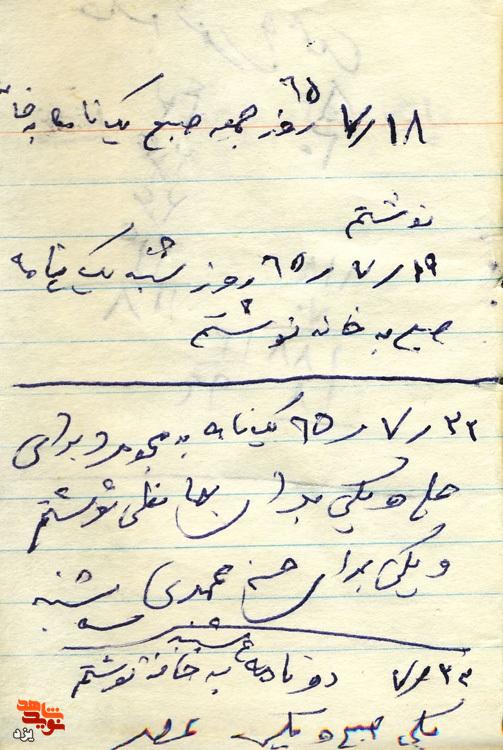 ۱۸/۷/۶۵ روز جمعه صبح یک نامه به
نوشتم
۱۹/۷/۶۵ روز شنبه یک نامه
صبح به خانه نوشتم
۲۲/۷/۶۵ یک نامه به و برای
و یکی برای نوشتم
و یکی برای حسن محمدی شنبه
سه شنبه
۷ دو نامه به خانه نوشتم
یکی صبح و یکی عصر
نوید شاهد
یزد